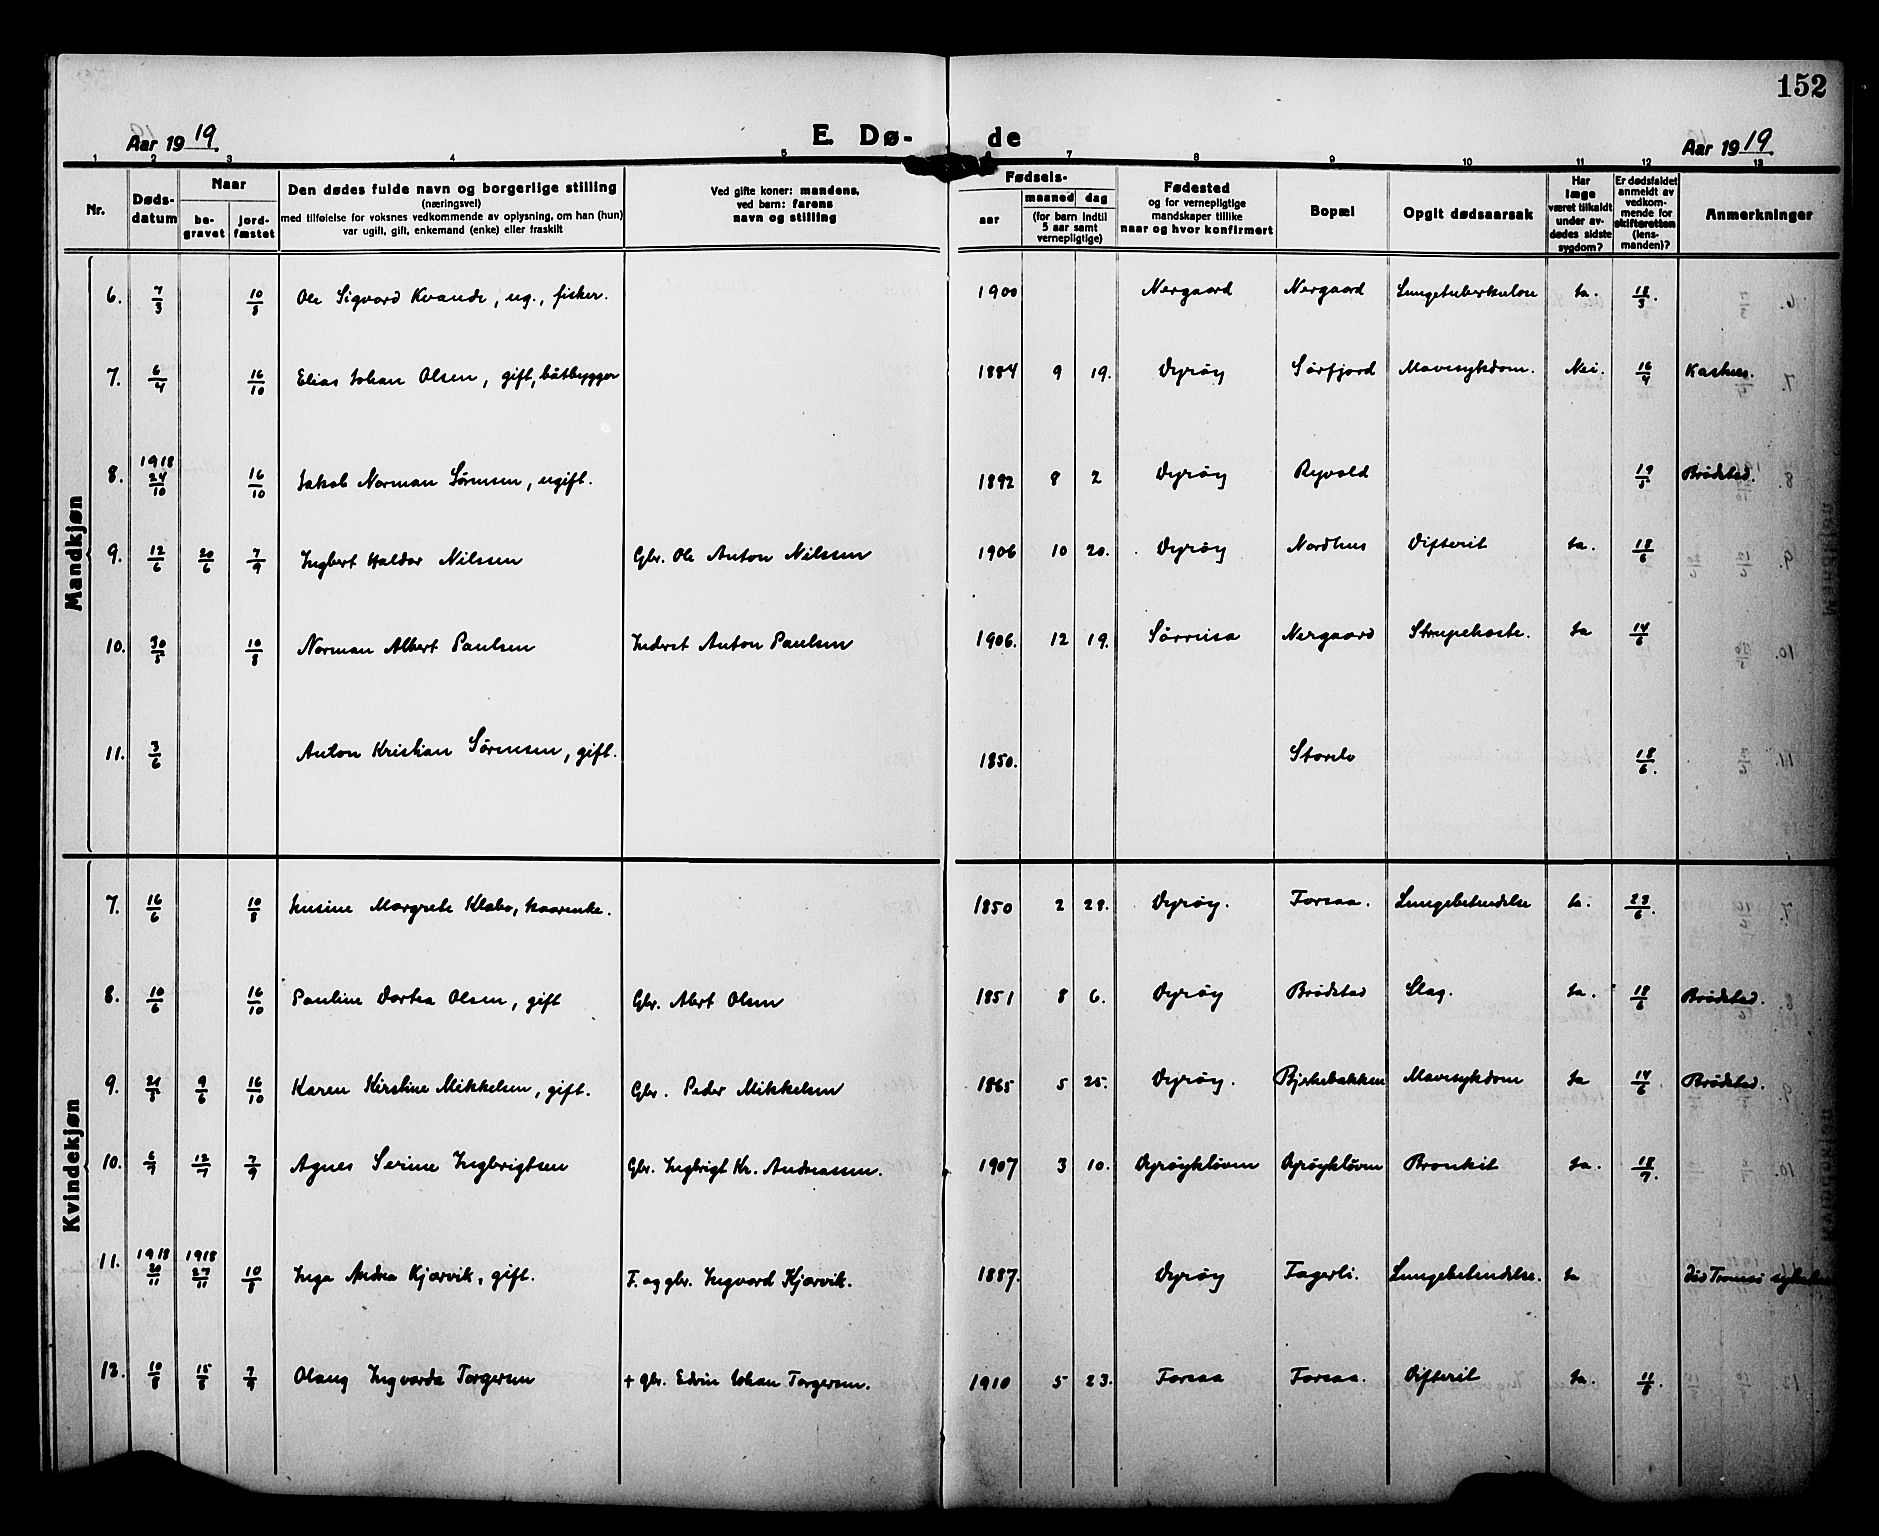 152
Aar 1919.
E. Dø-
de
Aar 1919.
1 2 3 4 5 7 8 9 10 11 12 13
Nr.
Døds-
datum
Naar
be-
gravet
jord-
fæstet
Den dødes fulde navn og borgerlige stilling
(næringsvei)
med tilføielse for voksnes vedkommende av oplysning, om han (hun)
var ugift, gift, enkemand (enke) eller fraskilt
Ved gifte koner: mandens,
ved barn: farens
navn og stilling
Fødsels-
aar
maaned
dag
(for barn indtil
5 aar samt
vernepligtige)
Fødested
og for vernepligtige
mandskaper tillike
naar og hvor konfirmert
Bopæl
Opgit dødsaarsak
Har
læge
været tilkaldt
under av-
dødes sidste
sygdom?
Er dødsfaldet
anmeldt av
vedkom-
mende for
skifteretten
(lens-
manden)?
Anmerkninger
Mandkjøn
6. 7/3 10/8 Ole Sigvard Kvande, ug., fisker. 1900 Nergaard Nergaard Lungetuberkulose Ja. 18/3.
7. 6/4 16/10 Elias Johan Olsen, gift, båtbygger 1884 9 19. Dyrøy Sørfjord Mavesykdom. Nei. 16/4 Kashus.
8. 1918 24/10 16/10 Jakob Norman Sørensen, ugift. 1892 8 2 Dyrøy Ryvold 19/5 Brødstad.
9. 12/6 20/6 7/9 Ingbert Haldor Nilssen Gbr. Ole Anton Nilssen 1906 10 20. Dyrøy Nordhus Difterit Ja. 18/6
10. 30/5 10/8 Norman Albert Paulsen Inderst Anton Paulsen 1906. 12 19. Sørreisa Nergaard Strupehoste. Ja 14/6
11. 3/6 Anton Kristian Sørensen, gift. 1850. Storelv 18/6.
Kvindekjøn
7. 16/6 10/8 Jensine Margrete Klabo, kaarenke. 1850 2 28. Dyrøy. Forsaa. Lungebetendelse Ja. 23/6.
8. 10/6 16/10 Pauline Dortea Olsen, gift Gbr. Abert Olsen 1851 8 6. Dyrøy Brødstad Slag. Ja. 18/6 Brødstad.
9. 21/5 9/6 16/10 Karen Kirstine Mikkelsen, gift. Gbr. Peder Mikkelsen 1865 5 25. Dyrøy. Bjerkebakken Mavesykdom Ja 14/6 Brødstad.
10. 6/7 12/7 7/9 Agnes Serine Ingbrigtsen Gbr. Ingbrigt Kr. Andreassen. 1907 3 10. Dyrøykløven Dyrøykløven Bronkit Ja. 18/7
11. 1918 20/11 1918 27/11 10/8 Inga Andrea Kjærvik, gift. F. og gbr. Ingvard Kjærvik. 1887. Dyrøy Fagerli. Lungebetendelse. Ja Død Tromsø
12. 10/8 15/8 7/9 Olaug Ingvarda Torgersen + gbr. Edvin Johan Torgersen. 1910 5 23. Forsaa Forsaa. Difterit Ja. 11/8.